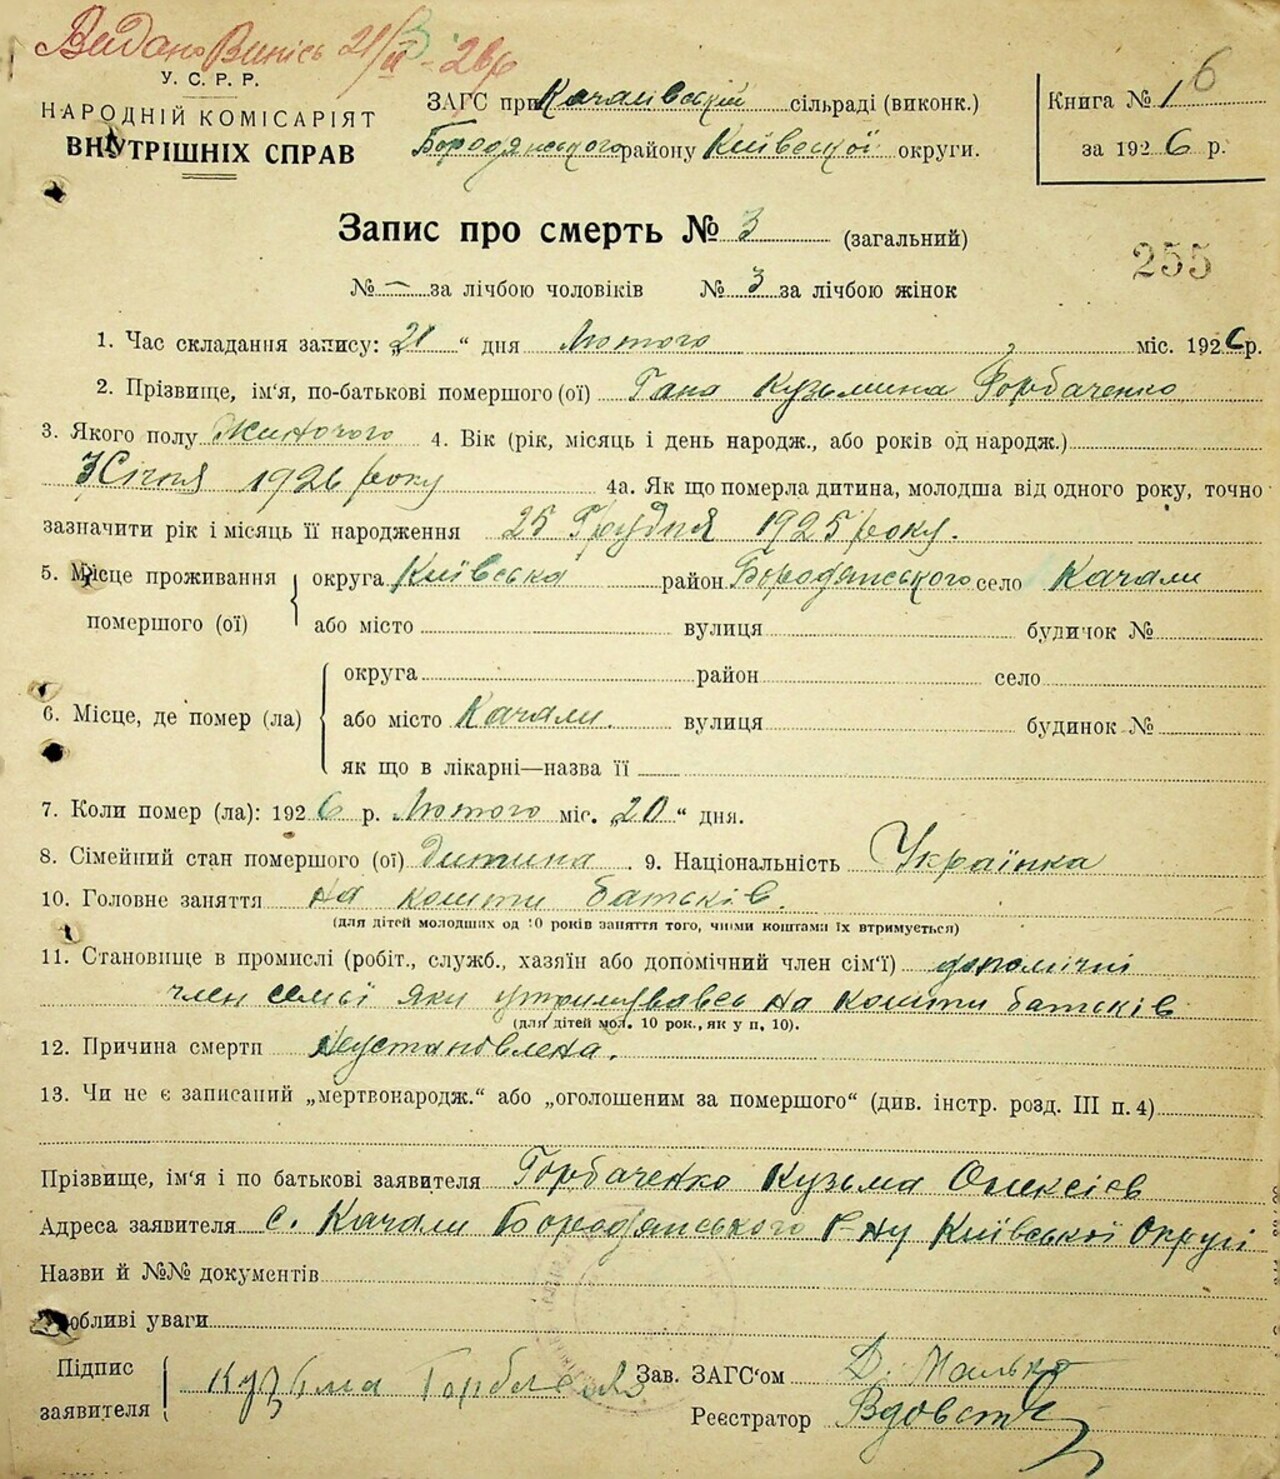 Видано Випись 21/II - 26р
У. С. Р. Р.
НАРОДНІЙ КОМІСАРІЯТ
ВНУТРІШНІХ СПРАВ
ЗАГС при Качалівській сільраді (виконк.)
Бородянського району Київської округи.
Книга № 1 6
за 1926 р.
Запис про смерть № 3 (загальний)
255
№ — за лічбою чоловіків № 3 за лічбою жінок
1. Час складання запису: „21“ дня Лютого міс. 1926р.
2. Прізвище, ім‘я, по-батькові помершого (ої) Гана Кузьмина Горбаченко
3. Якого полу Жиночого 4. Вік (рік, місяць і день народж., або років од народж.)
7 Січня 1926 року 4а. Як що померла дитина, молодша від одного року, точно
зазначити рік і місяць її народження 25 Грудня 1925 року.
5. Місце проживання округа Київська район Бородянського село Качали
помершого (ої) або місто вулиця будинок №
округа район село
6. Місце, де помер (ла) або місто Качали. вулиця будинок №
як що в лікарні—назва її
7. Коли помер (ла): 1926 р. Лютого міс. „20“ дня.
8. Сімейний стан помершого (ої) дитина. 9. Національність Українка
10. Головне заняття на кошти батьків.
(для дітей молодших од 10 років заняття того, чиїми коштами їх втримується)
11. Становище в промислі (робіт., служб., хазяїн або допомічний член сім‘ї) допомічні
член семьї яки утримувавсь на кошти батьків
(для дітей мол. 10 рок., як у п. 10).
12. Причина смерти Неустановлена.
13. Чи не є записаний „мертвонародж.“ або „оголошеним за помершого“ (див. інстр. розд. III п. 4)
Прізвище, ім‘я і по батькові заявителя Горбаченко Кузьма Олексієв
Адреса заявителя с. Качали Бородянського р-ну Київської Округі
Назви й №№ документів
Особливі уваги
Підпис
заявителя Кузьма
Зав. ЗАГС‘ом Д. Малько
Реєстратор